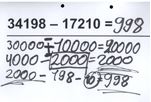 34198 – 17210 = 998
30000 – 10000 = 20000
4000 – 2000 = 2000
2000 – 198 – = 998